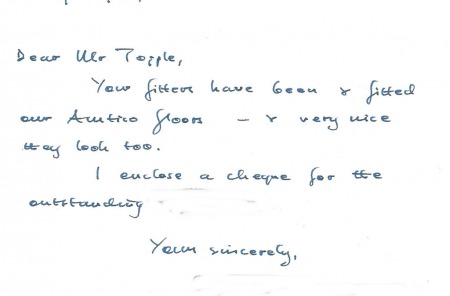 Dear Mr Topple,
Your fitters have been & fitted
our Amtico floors - & very nice
they look too.
I enclose a cheque for the
outstanding
Yours sincerely,